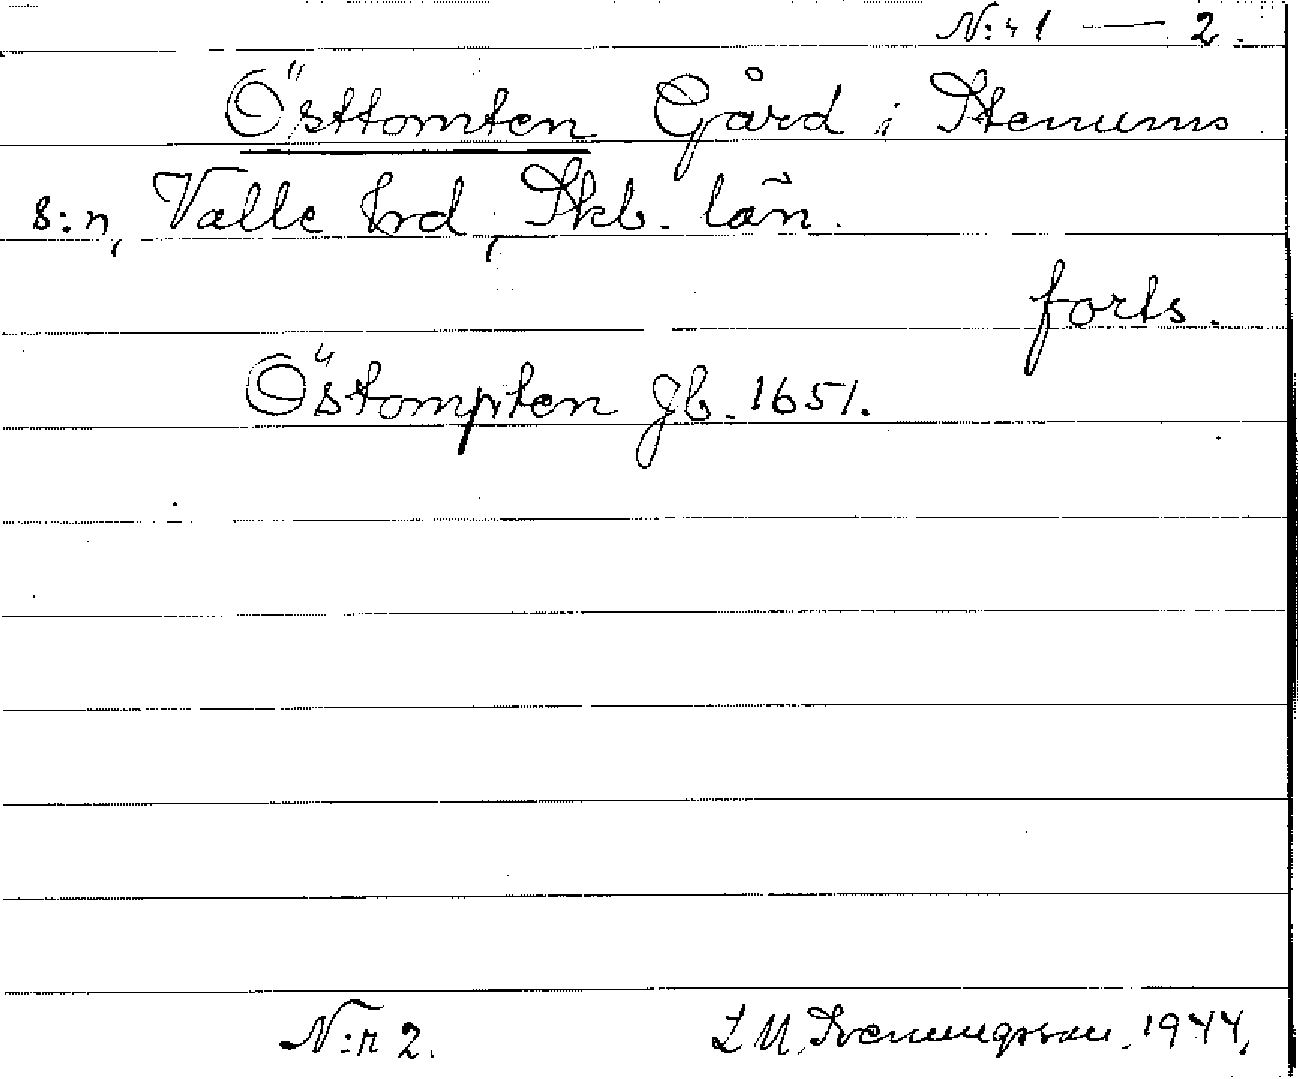 N:r 1 — 2.
Östtomten Gård i Stenums
s:n, Valle hrd, Skb. län.
forts.
Östompten jb. 1651.
N:r 2.
L M. Svenungsson. 1944.